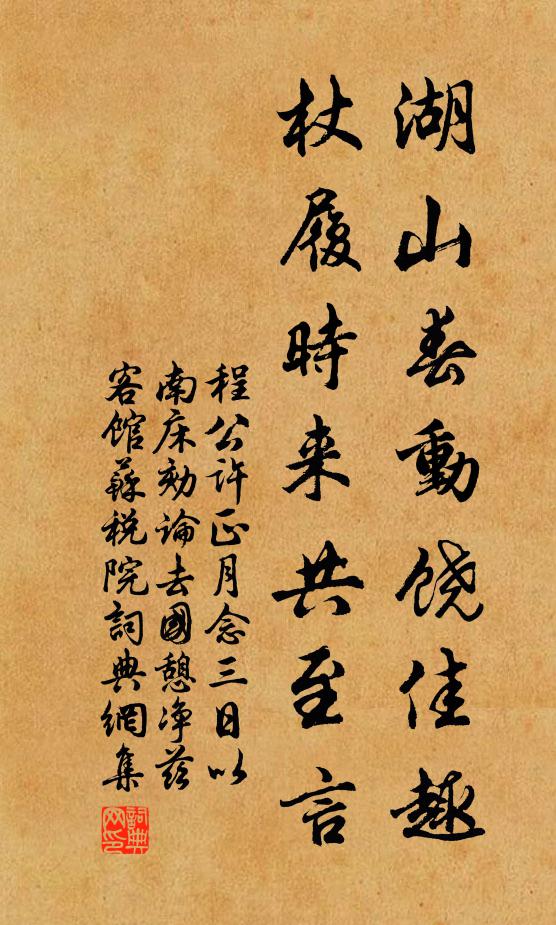 湖山春動饒佳趣
杖履時来共至言
程公許正月念三日以
南床劾論去國憩净兹
客館蘇税院詞典網集
詞典网印